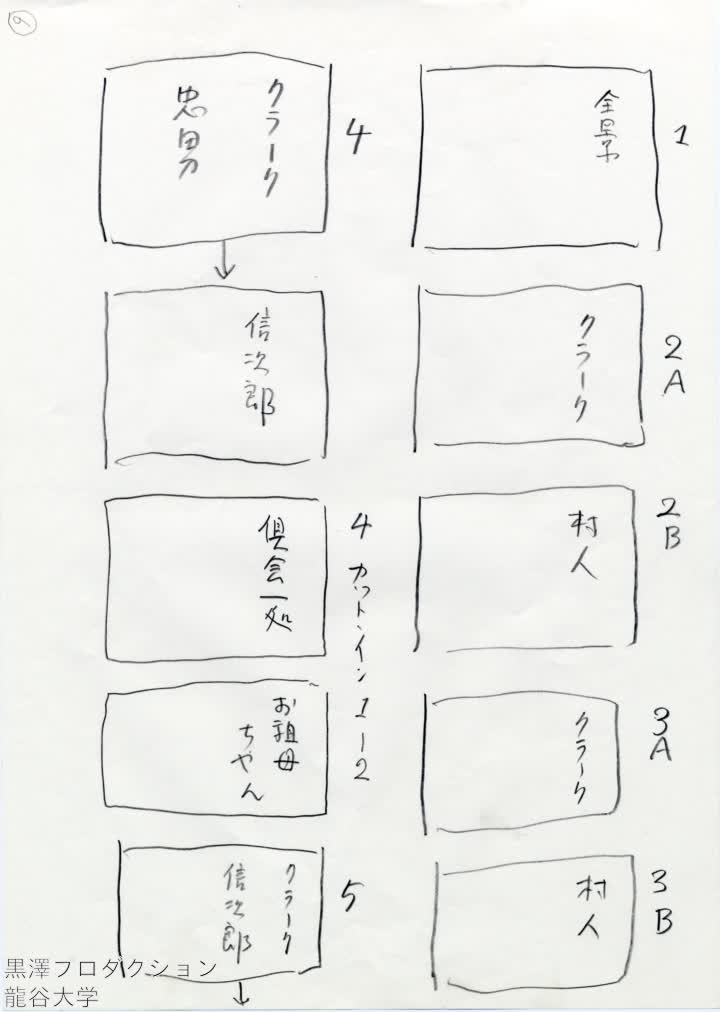 9
1
全景
2
A
クラーク
2
B
村人
3
A
クラーク
3
B
村人
4
クラーク
忠男
信次郎
4 カット・イン 1-2
倶会一処
お祖母
ちゃん
5
クラーク
信次郎
黒澤プロダクション
龍谷大学